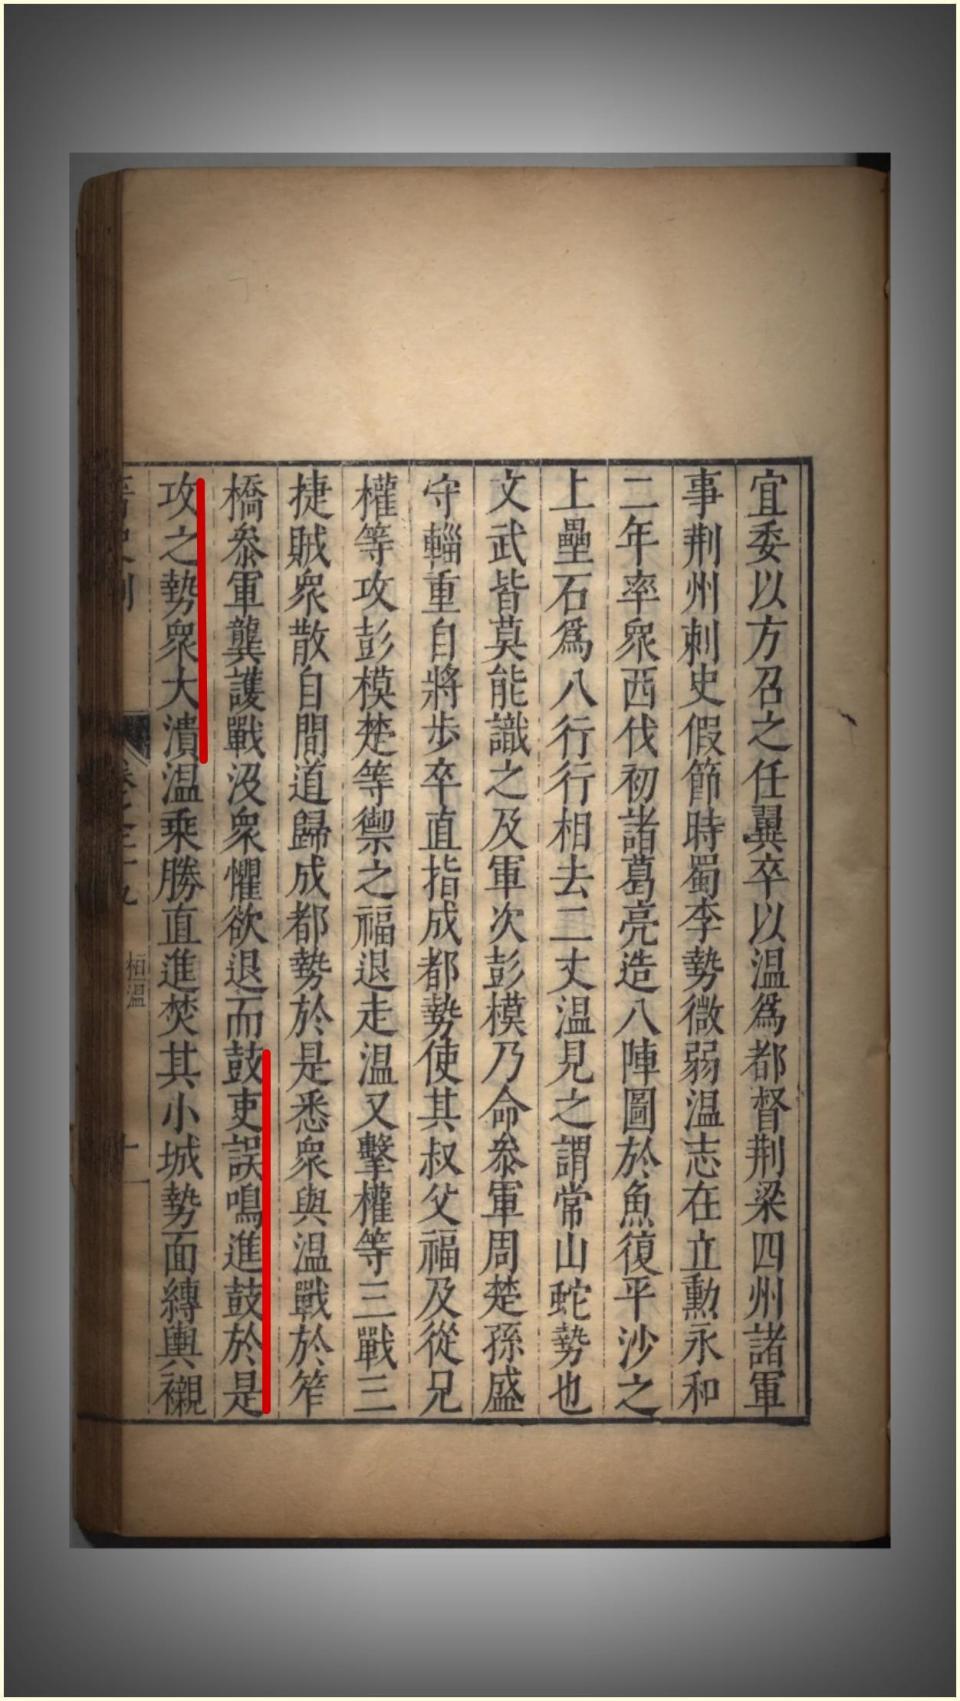 宜委以方召之任翼卒以温爲都督荆梁四州諸軍
事荆州刺史假節時蜀李勢微弱温志在立勳永和
二年率衆西伐初諸葛亮造八陣圖於魚復平沙之
上壘石爲八行行相去二丈温見之謂常山蛇勢也
文武皆莫能識之及軍次彭模乃命叅軍周楚孫盛
守輜重自將步卒直指成都勢使其叔父福及從兄
權等攻彭模楚等禦之福退走温又擊權等三戰三
捷賊衆散自間道歸成都勢於是悉衆與温戰於笮
橋叅軍龔護戰沒衆懼欲退而鼓吏誤鳴進鼓於是
攻之勢衆大潰温乘勝直進焚其小城勢面縳輿襯
卷之三十九
桓温
十一